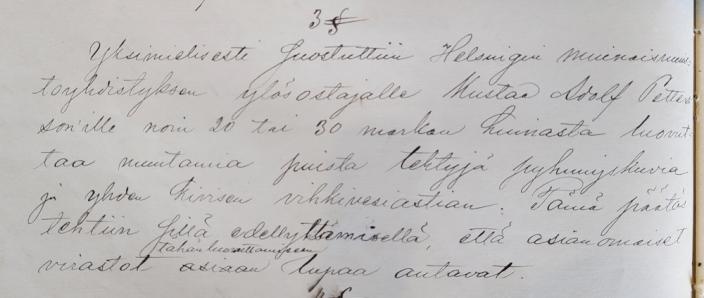 3 §
Yksimielisesti suostuttiin Helsingin muinaismuis-
toyhdistyksen ylösostajalle Kustaa Adolf Petter-
son'ille noin 20 tai 30 markan hinnasta luovut-
taa muutamia puista tehtyjä pyhimyskuvia
ja yhden kivisen vihkivesiastian. Tämä päätös
tehtiin sillä edellyttämisellä, että asianomaiset
tähän luovuttamiseen
virastot asiaan lupaa antavat.